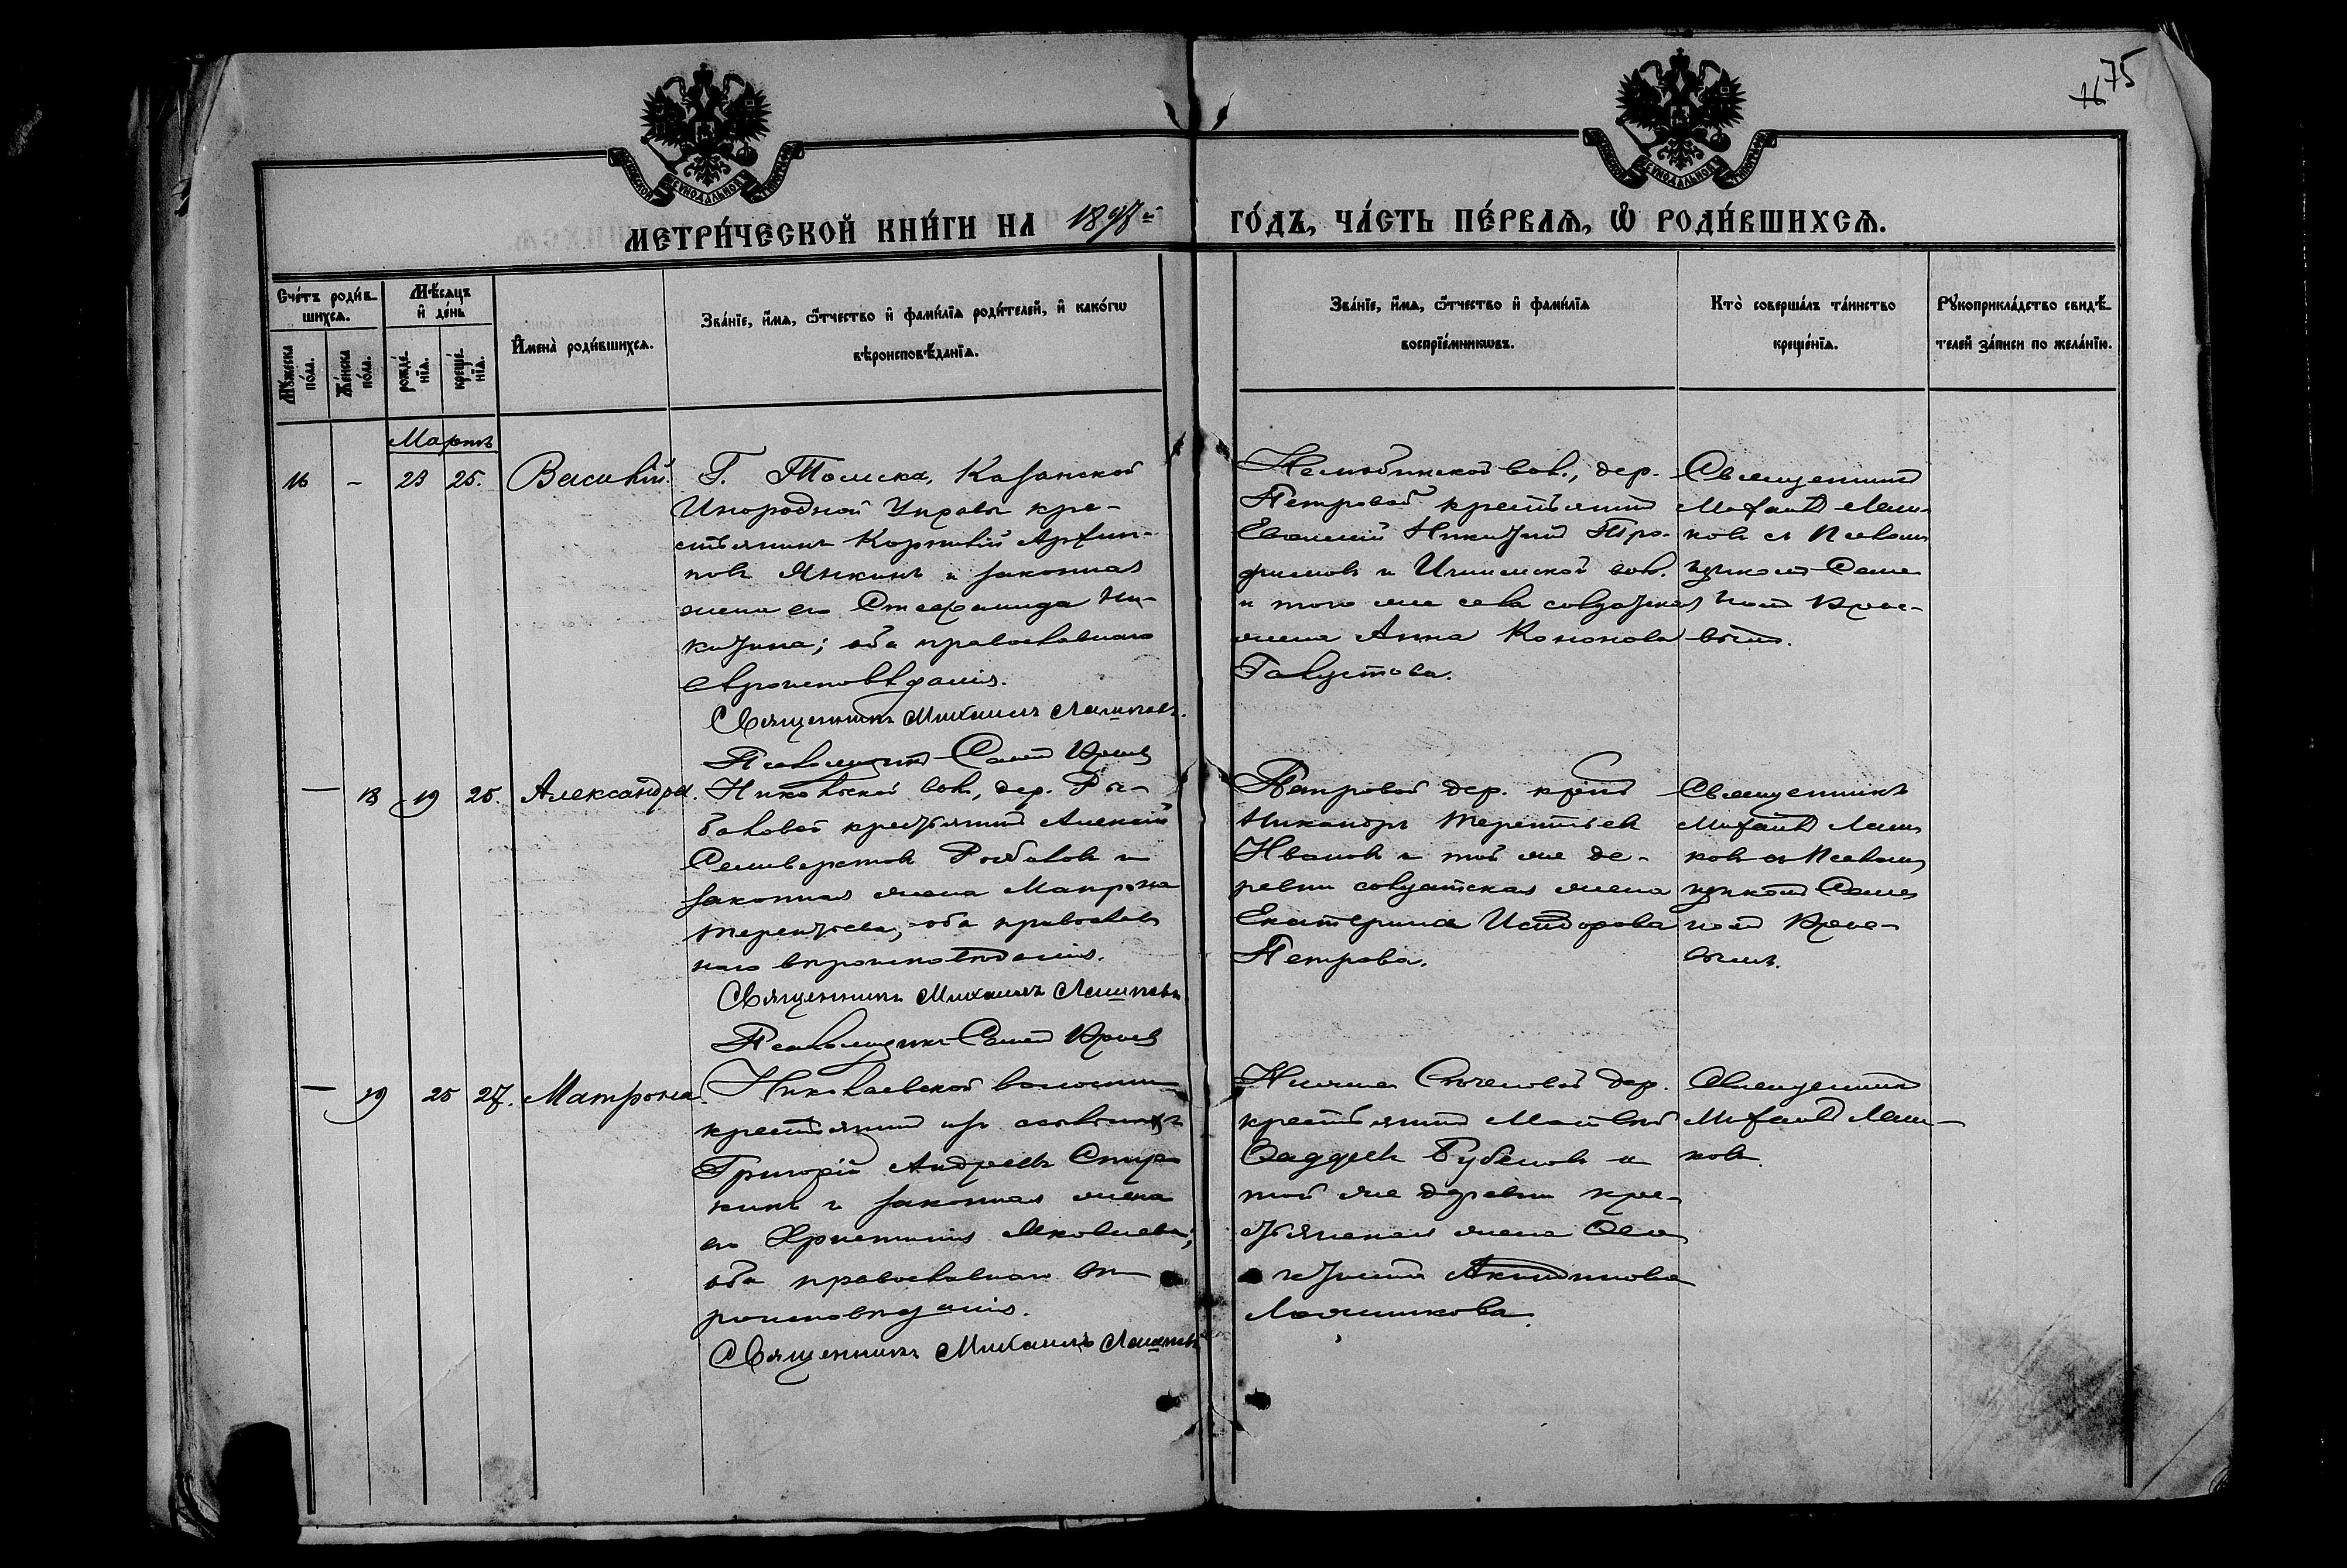 75
16
МЕТРИ́ЧЕСКОЙ КНИ́ГИ НА 1897й ГО́ДЪ, ЧА́СТЬ ПЕ́РВАѦ, Ѡ҆ РОДИ́ВШИХСѦ.
Сче́тъ роди́в-
шихсѧ.
Мꙋжеска по́ла.
Же́нска по́ла.
Мѣ́сѧцъ и҆ де́нь
рожде́нїѧ.
креще́нїѧ.
И҆мена̀ роди́вшихсѧ.
Зва́нїе, и҆́мѧ, ѻ҆́тчество и҆ фами́лїѧ роди́телей, и҆ како́гѡ
вѣроисповѣ́данїѧ.
Зва́нїе, и҆́мѧ, ѻ҆́тчество и҆ фами́лїѧ
воспрїе́мникѡвъ.
Кто̀ соверша́лъ та́инство
креще́нїѧ.
Рꙋкоприкла́дство свидѣ́-
телей за́писи по жела́нїю.
Мартъ
16 - 23 25. Василій.
Г. Томска, Казанской
Инородной Управы кре-
стьянинъ Корнилій Архип-
повъ Янкинъ и законная
жена его Стефанида Ни-
китина; оба православнаго
вѣроисповѣданія.
Священникъ Михаилъ Лашковъ.
Псаломщикъ
вол., дер.
Петровой крестьянинъ
Евсевий Никитин Тро-
фимовъ и Ишимской вол.
и того же села солдатская
жена Анна Кононова
Священникъ
Михаилъ Лаш-
ковъ съ Псалом-
щикомъ
— 18 19 25. Александра.
Никольской вол., дер. Ры-
баловой крестьянинъ Алексій
Селиверстовъ Рыбаловъ и
законная жена Матрона
Терентьева, оба православ-
наго вѣроисповѣданія.
Священникъ Михаилъ Лашковъ
Псаломщикъ
Петровой дер. крест
Никаноръ Терентьев
Ивановъ и той же де-
ревни солдатская жена
Екатерина Исидорова
Петрова.
Священникъ
Михаилъ Лаш
ковъ съ Псалом
щикомъ
— 19 25 27. Матрона.
Николаевской волости
крестьянинъ изъ ссыльныхъ
Григорій Андреевъ
и законная жена
его Христинія Яковлева;
оба православнаго вѣ-
роисповѣданія.
Священникъ Михаилъ Лашковъ
дер.
крестьянинъ Матвей
Фаддеев и
той же деревни кре-
стьянская жена Фео
ктиста Акиндинова
Священникъ
Михаилъ Лаш-
ковъ.